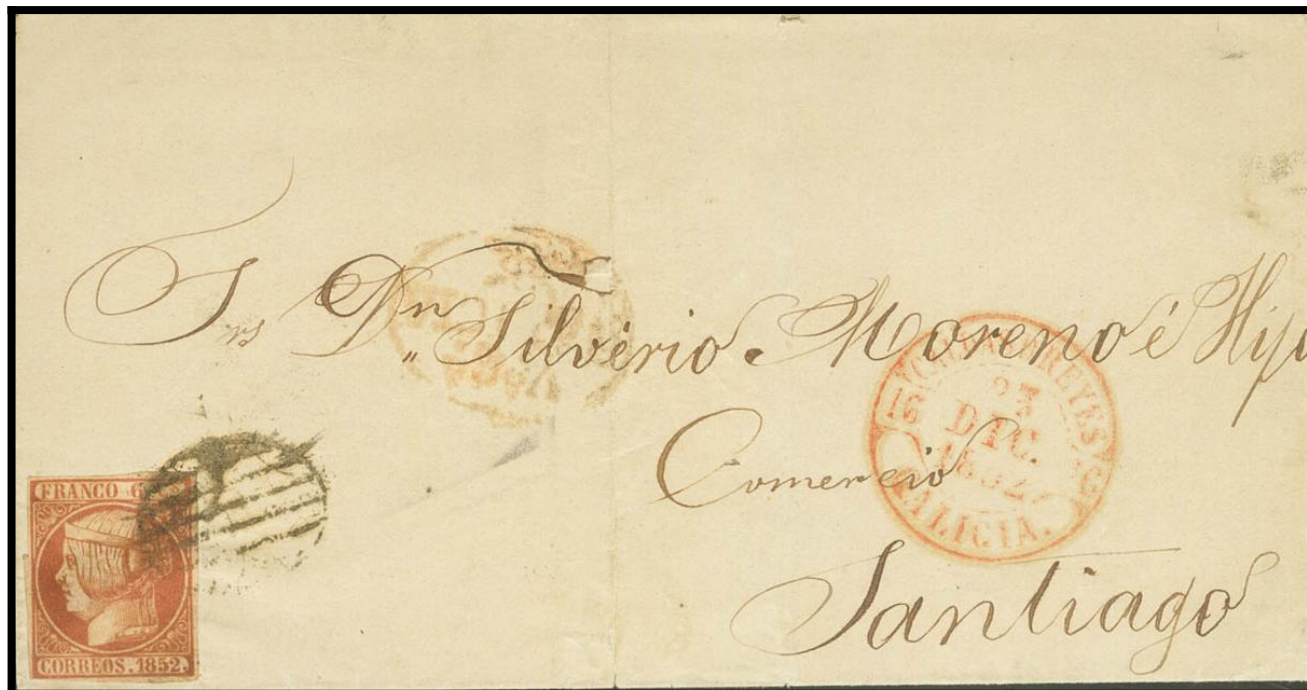 Srs Dn Silvério. Moreno é Hijo
Comercio
Santiago
23
DIC.
1852
GALICIA.
FRANCO 6
CORREOS. 1852.